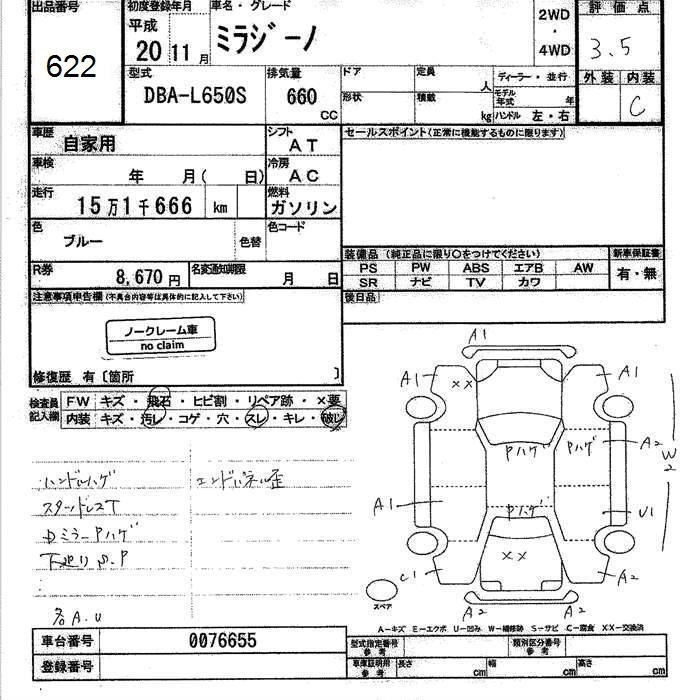 出品番号 初度登録年月 車名・グレード 評価点
622 平成 20 11月 ミラジーノ 2WD・4WD 3.5
型式 DBA-L650S 排気量 660 CC ドア 定員 人 ディーラー・並行 外装 内装
形状 積載 kg モデル年式 年 ハンドル 左・右 C
車歴 自家用 シフト AT セールスポイント(正常に機能するものに限ります)
車検 年 月( 日) 冷房 AC
走行 15万1千666 km 燃料 ガソリン
色 ブルー 色替 色コード
装備品(純正品に限り○をつけてください) 新車保証書
R券 8,670円 名変通知期限 月 日 PS PW ABS エアB AW 有・無
SR ナビ TV カワ
注意事項申告欄(不具合内容等は具体的に記入して下さい) 後日品
ノークレーム車
no claim
修復歴 有〔箇所 〕
検査員記入欄 FW キズ・飛石・ヒビ割・リペア跡・×要
内装 キズ・汚レ・コゲ・穴・スレ・キレ・破レ
ハンドルハゲ エンドパネル歪
スタッドレスT
Dミラー Pハゲ
下廻り S.P
各A.U
A1
A1 XX A1
A2 W2
Pハゲ Pハゲ
A1 Pハゲ U1
XX
C1 A2
スペア A2 A2
A-キズ E-エクボ U-凹み W-補修跡 S-サビ C-腐食 XX-交換済
車台番号 0076655 型式指定番号 参考 類別区分番号 参考
登録番号 車庫証明用 参考 長さ cm 幅 cm 高さ cm